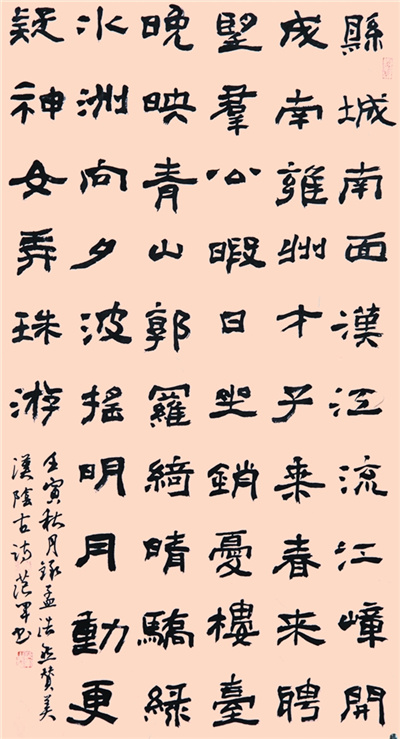 縣城南面漢江流江嶂開
成南雍州才子乘春來聘
望羣公暇日坐銷憂樓臺
晚映青山郭羅綺晴驕緑
水洲向夕波搖明月動更
疑神女弄珠游
壬寅秋月録孟浩然贊美
漢陰古詩范军书